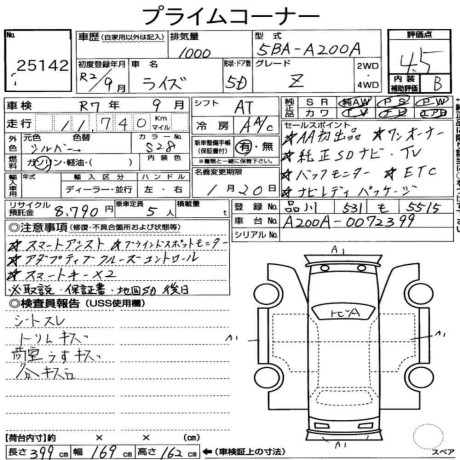 プライムコーナー
No. 25142
車歴(自家用以外は記入)
排気量 1000
型式 5BA-A200A
評価点 4.5
初度登録年月 R2/9月
車名 ライズ
形状・ドア数 5D
グレード Z
2WD・4WD
内装補助評価 B
車検 R7年9月
シフト AT
純正 SR AW PS PW
走行 11,740 Km マイル
冷房 AAC
カワ TV ナビ エアB
外色 元色 シルバー 色替 カラーNo. S28
セールスポイント
新車整備手帳(保証書付) 有・無
※保証書に整備記録簿含む
★AA初出品 ★ワンオーナー
燃料 ガソリン・軽油・( ) 内装色
★純正SDナビ・TV
名義変更期限
★バックモニター ★ETC
輸入車用 輸入区分 ハンドル
ディーラー・並行 左・右
1月20日
★ナビレディパッケージ
リサイクル預託金 8,790円
乗車定員 5人
積載量 t
登録No. 品川 531 も 5515
車台No. A200A-0072399
シリアルNo.
◎注意事項(修復・不具合箇所および状態等)
★スマートアシスト ★ブラインドスポットモニター
★アダプティブクルーズコントロール
★スマートキー×2
※取説・保証書・地図SD後日
◎検査員報告(USS使用欄)
シートスレ
トリムキズ
荷室うすキズ
A1
A1
【荷台内寸】 × × (cm)
長さ 399cm 幅 169cm 高さ 162cm
(車検証上の寸法)
スペア